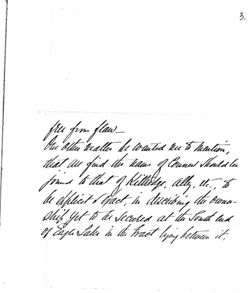 3.
free from flaw—
One other matter he wanted me to mention,
that we find the name of Conners should be
joined to that of Kittredge, Ally, etc., to
be explicit & exact, in describing the owner-
ship yet to be secured at the South end
of Eagle Lake in the tract lying between it.